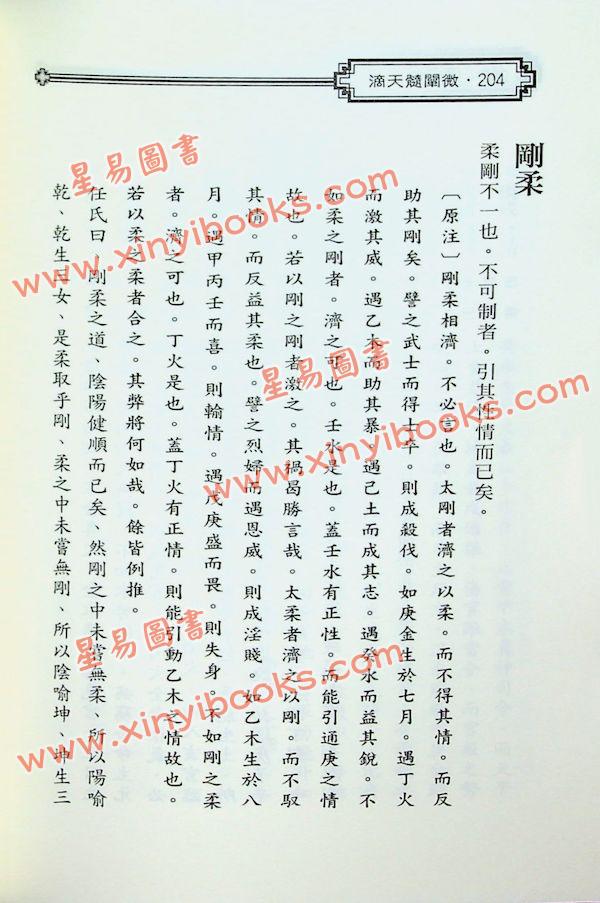 滴天髓闡微·204
剛柔
柔剛不一也。不可制者。引其性情而已矣。
〔原注〕剛柔相濟。不必言也。太剛者濟之以柔。而不得其情。而反
助其剛矣。譬之武士而得士卒。則成殺伐。如庚金生於七月。遇丁火
而激其威。遇乙木而助其暴。遇己土而成其志。遇癸水而益其銳。不
如柔之剛者。濟之可也。壬水是也。蓋壬水有正性。而能引通庚之情
故也。若以剛之剛者激之。其禍曷勝言哉。太柔者濟之以剛。而不馭
其情。而反益其柔也。譬之烈婦而遇恩威。則成淫賤。如乙木生於八
月。遇甲丙壬而喜。則輸情。遇戊庚盛而畏。則失身。不如剛之柔
者。濟之可也。丁火是也。蓋丁火有正情。則能引動乙木之情故也。
若以柔之柔者合之。其弊將何如哉。餘皆例推。
任氏曰、剛柔之道、陰陽健順而已矣、然剛之中未嘗無柔、所以陽喻
乾、乾生三女、是柔取乎剛、柔之中未嘗無剛、所以陰喻坤、坤生三
星易圖書
www.xinyibooks.com
星易圖書
www.xinyibooks.com
星易圖書
www.xinyibooks.com